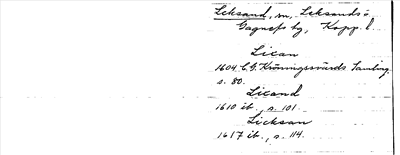 Leksand, sn, Leksands o
Gagnefs tg, Kopp. l.
Lican
1604 C.G. Kröningssvärds Samling.
s. 80.
Licand
1610 ib., s. 101.
Licksan
1617 ib., s. 114.